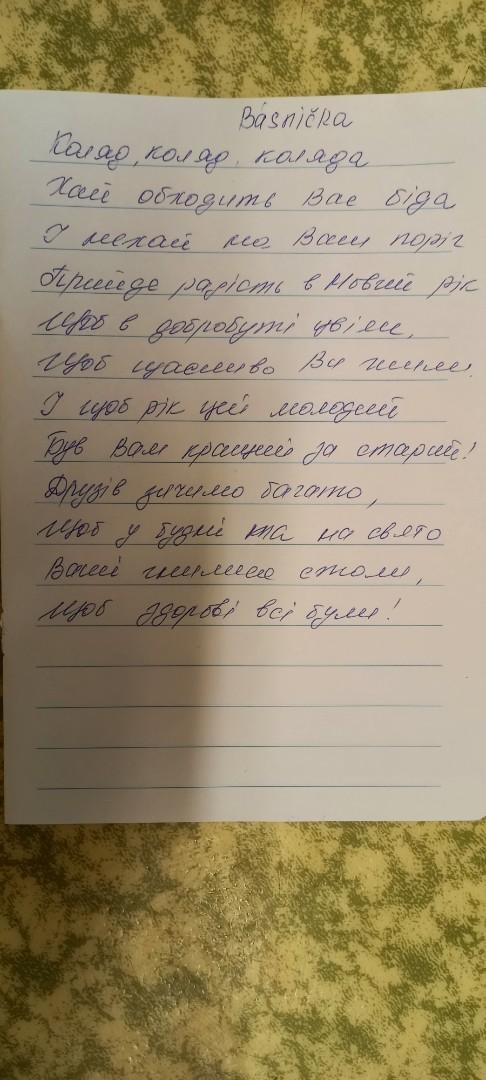 Básnička
Коляд, коляд, коляда
Хай обходить Вас біда
І нехай на Ваш поріг
Прийде радість в Новий рік
Щоб в добробуті цвіли,
Щоб щасливо Ви жили.
І щоб рік цей молодий
Був Вам кращий за старий!
Друзів зичимо багато,
Щоб у будні та на свято
Ваші гнилися столи,
Щоб здорові всі були!